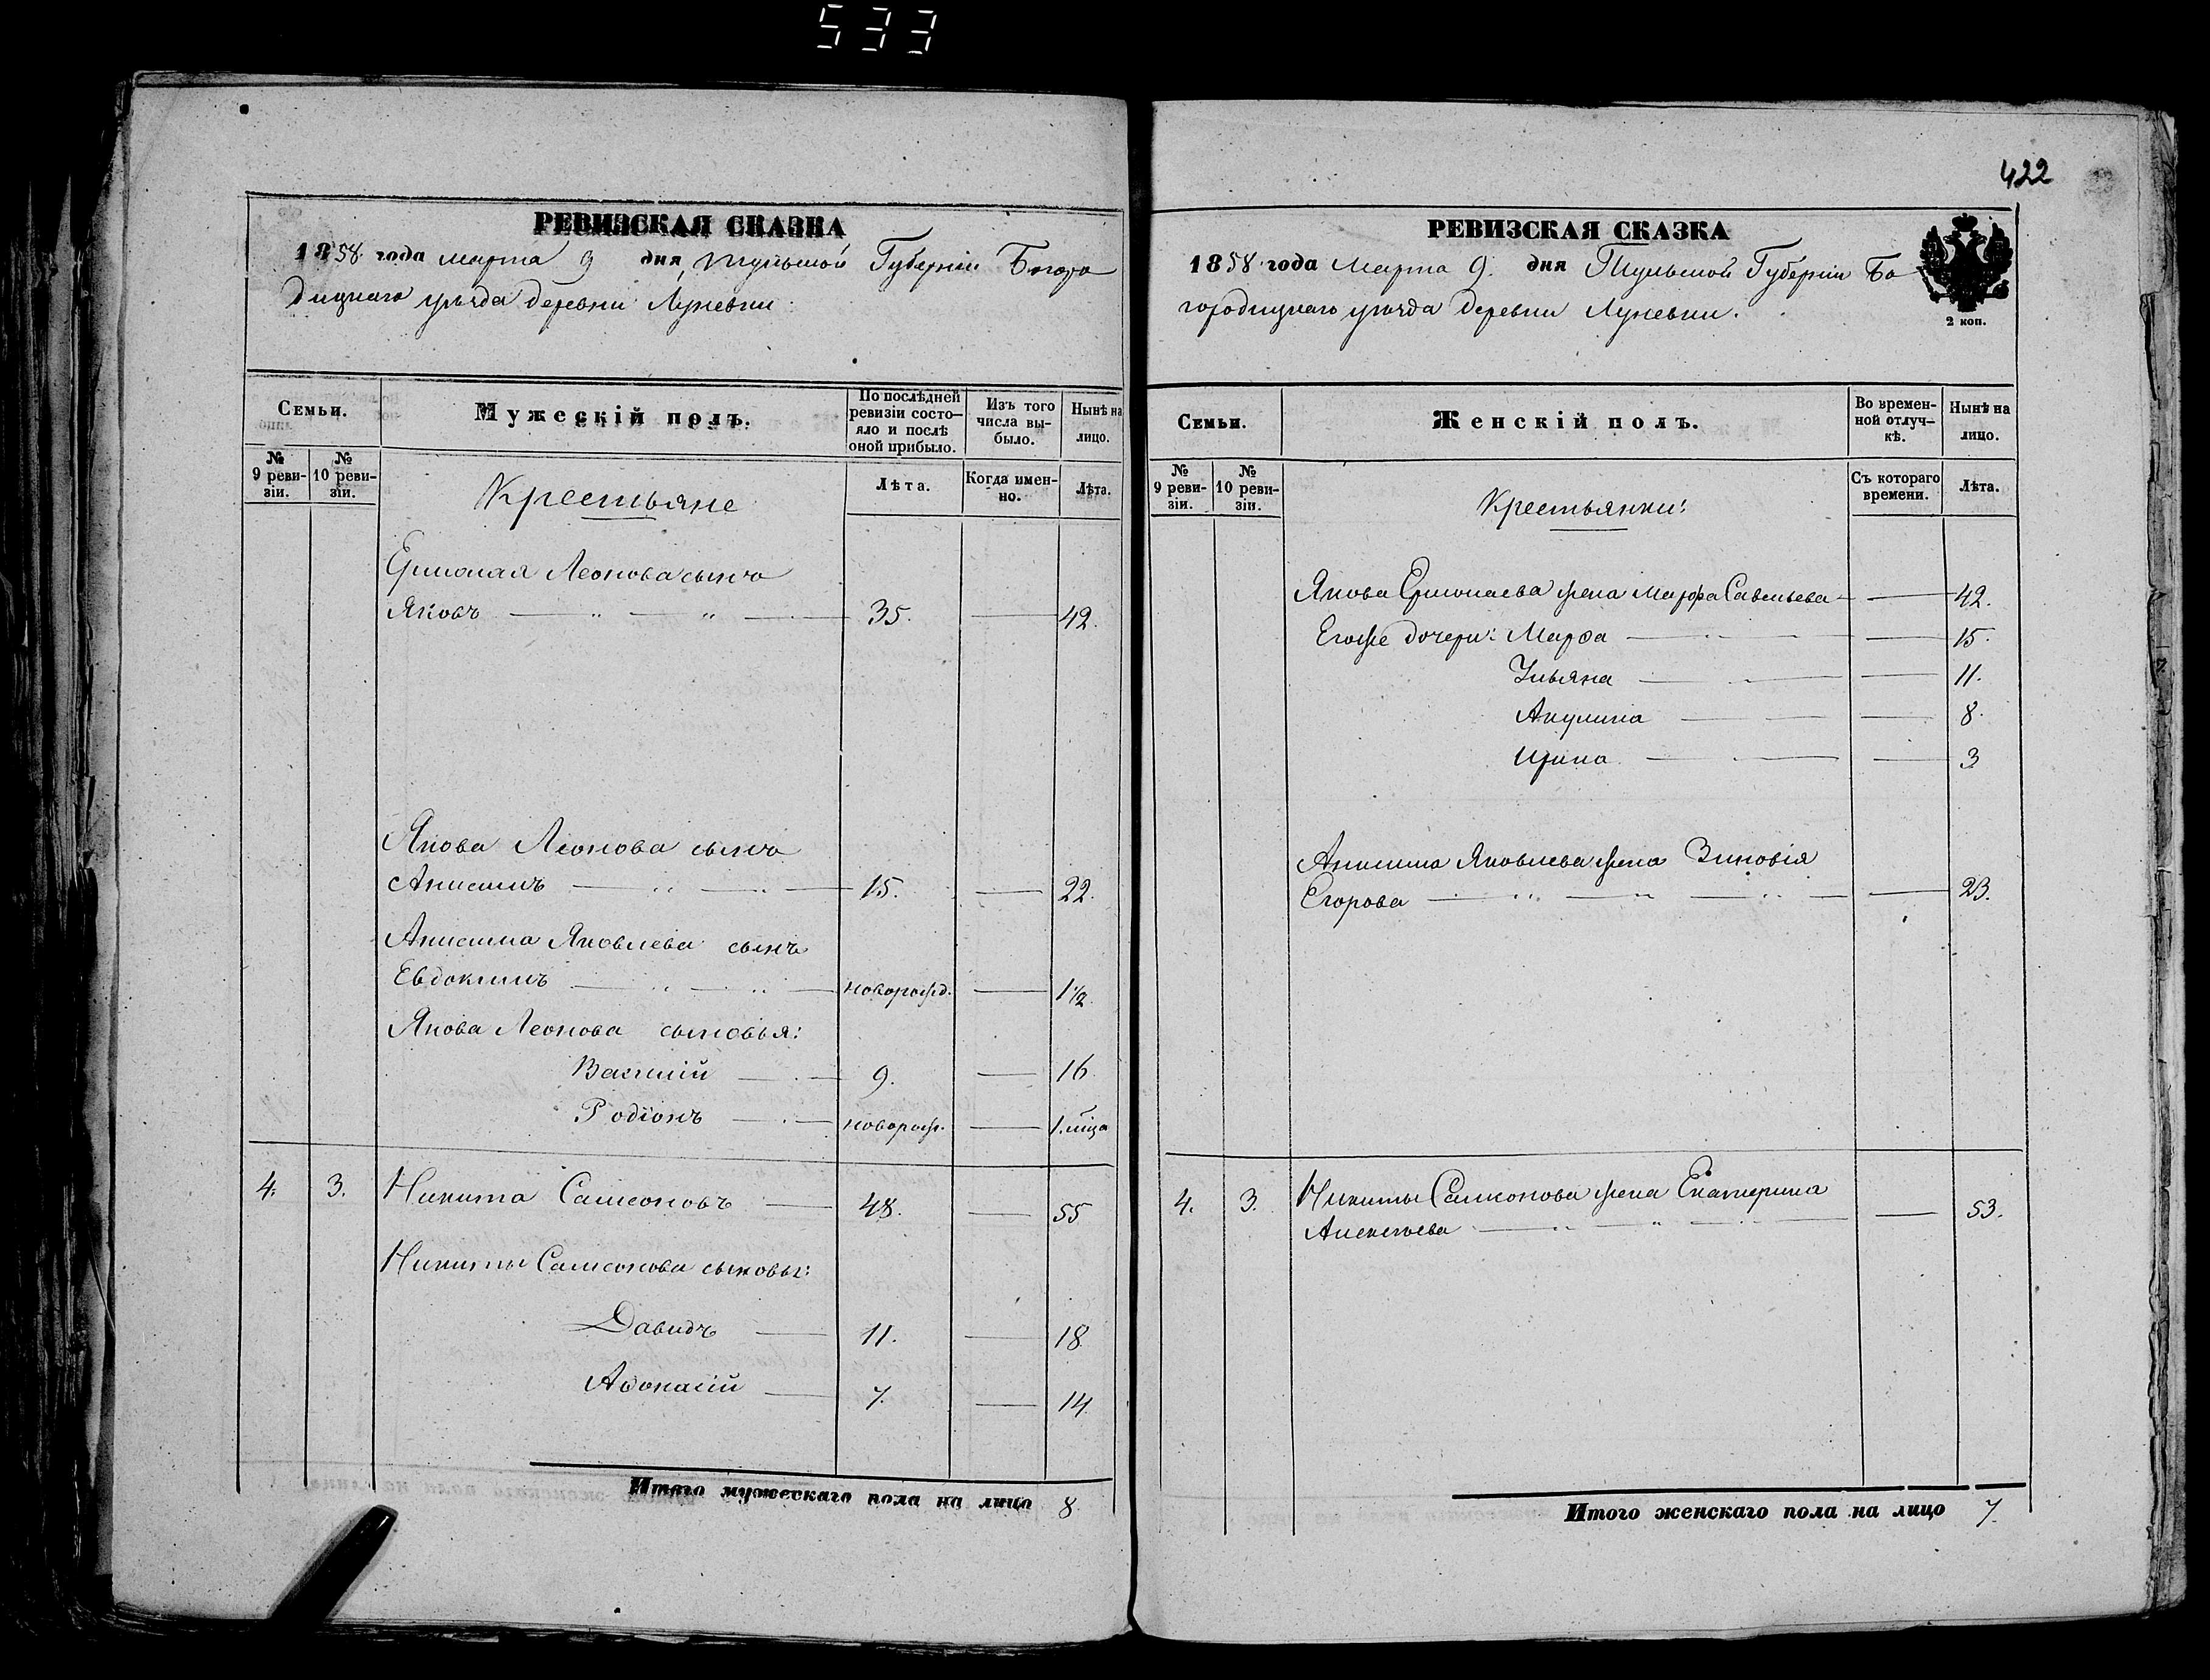 533
422
РЕВИЗСКАЯ СКАЗКА
1858 года марта 9 дня, Тульской Губерніи Богоро
дицкаго уѣзда деревни Луневки
Семьи.
Мужескій полъ.
По послѣдней ревизіи состо-
яло и послѣ
оной прибыло.
Изъ того
числа вы-
было.
Нынѣ на
лицо.
№
9 реви-
зіи.
№
10 реви-
зіи.
Лѣта.
Когда имен-
но.
Лѣта.
Крестьяне
Ермолая Леонова сынъ
Яковъ 35. 42.
Якова Леонова сынъ
Анисимъ 15. 22.
Анисима Яковлева сынъ
Евдокимъ новорожд. 1 1/2
Якова Леонова сыновья:
Василій 9. 16
Родіонъ новорож. 1. мѣца
4. 3. Никита Самсоновъ 48. 55
Никиты Самсонова сыновья:
Давидъ 11. 18
Афонасій 7. 14
Итого мужескаго пола на лицо 8
РЕВИЗСКАЯ СКАЗКА
1858 года Марта 9. дня Тульской Губерніи Бо
городицкаго уѣзда деревни Луневки.
2 коп.
Семьи.
Женскій полъ.
Во времен-
ной отлуч-
кѣ.
Нынѣ на
лицо.
№
9 реви-
зіи.
№
10 реви-
зіи.
Съ котораго
времени.
Лѣта.
Крестьянки:
Якова Ермолаева жена Марфа Савельева 42.
Егоже дочери: Марфа 15.
Ульяна 11.
Акулина 8.
Ирина 3
Анисима Яковлева жена Зиновія
Егорова 23.
4. 3. Никиты Самсонова жена Екатерина
Алексѣева 53.
Итого женскаго пола на лицо 7.